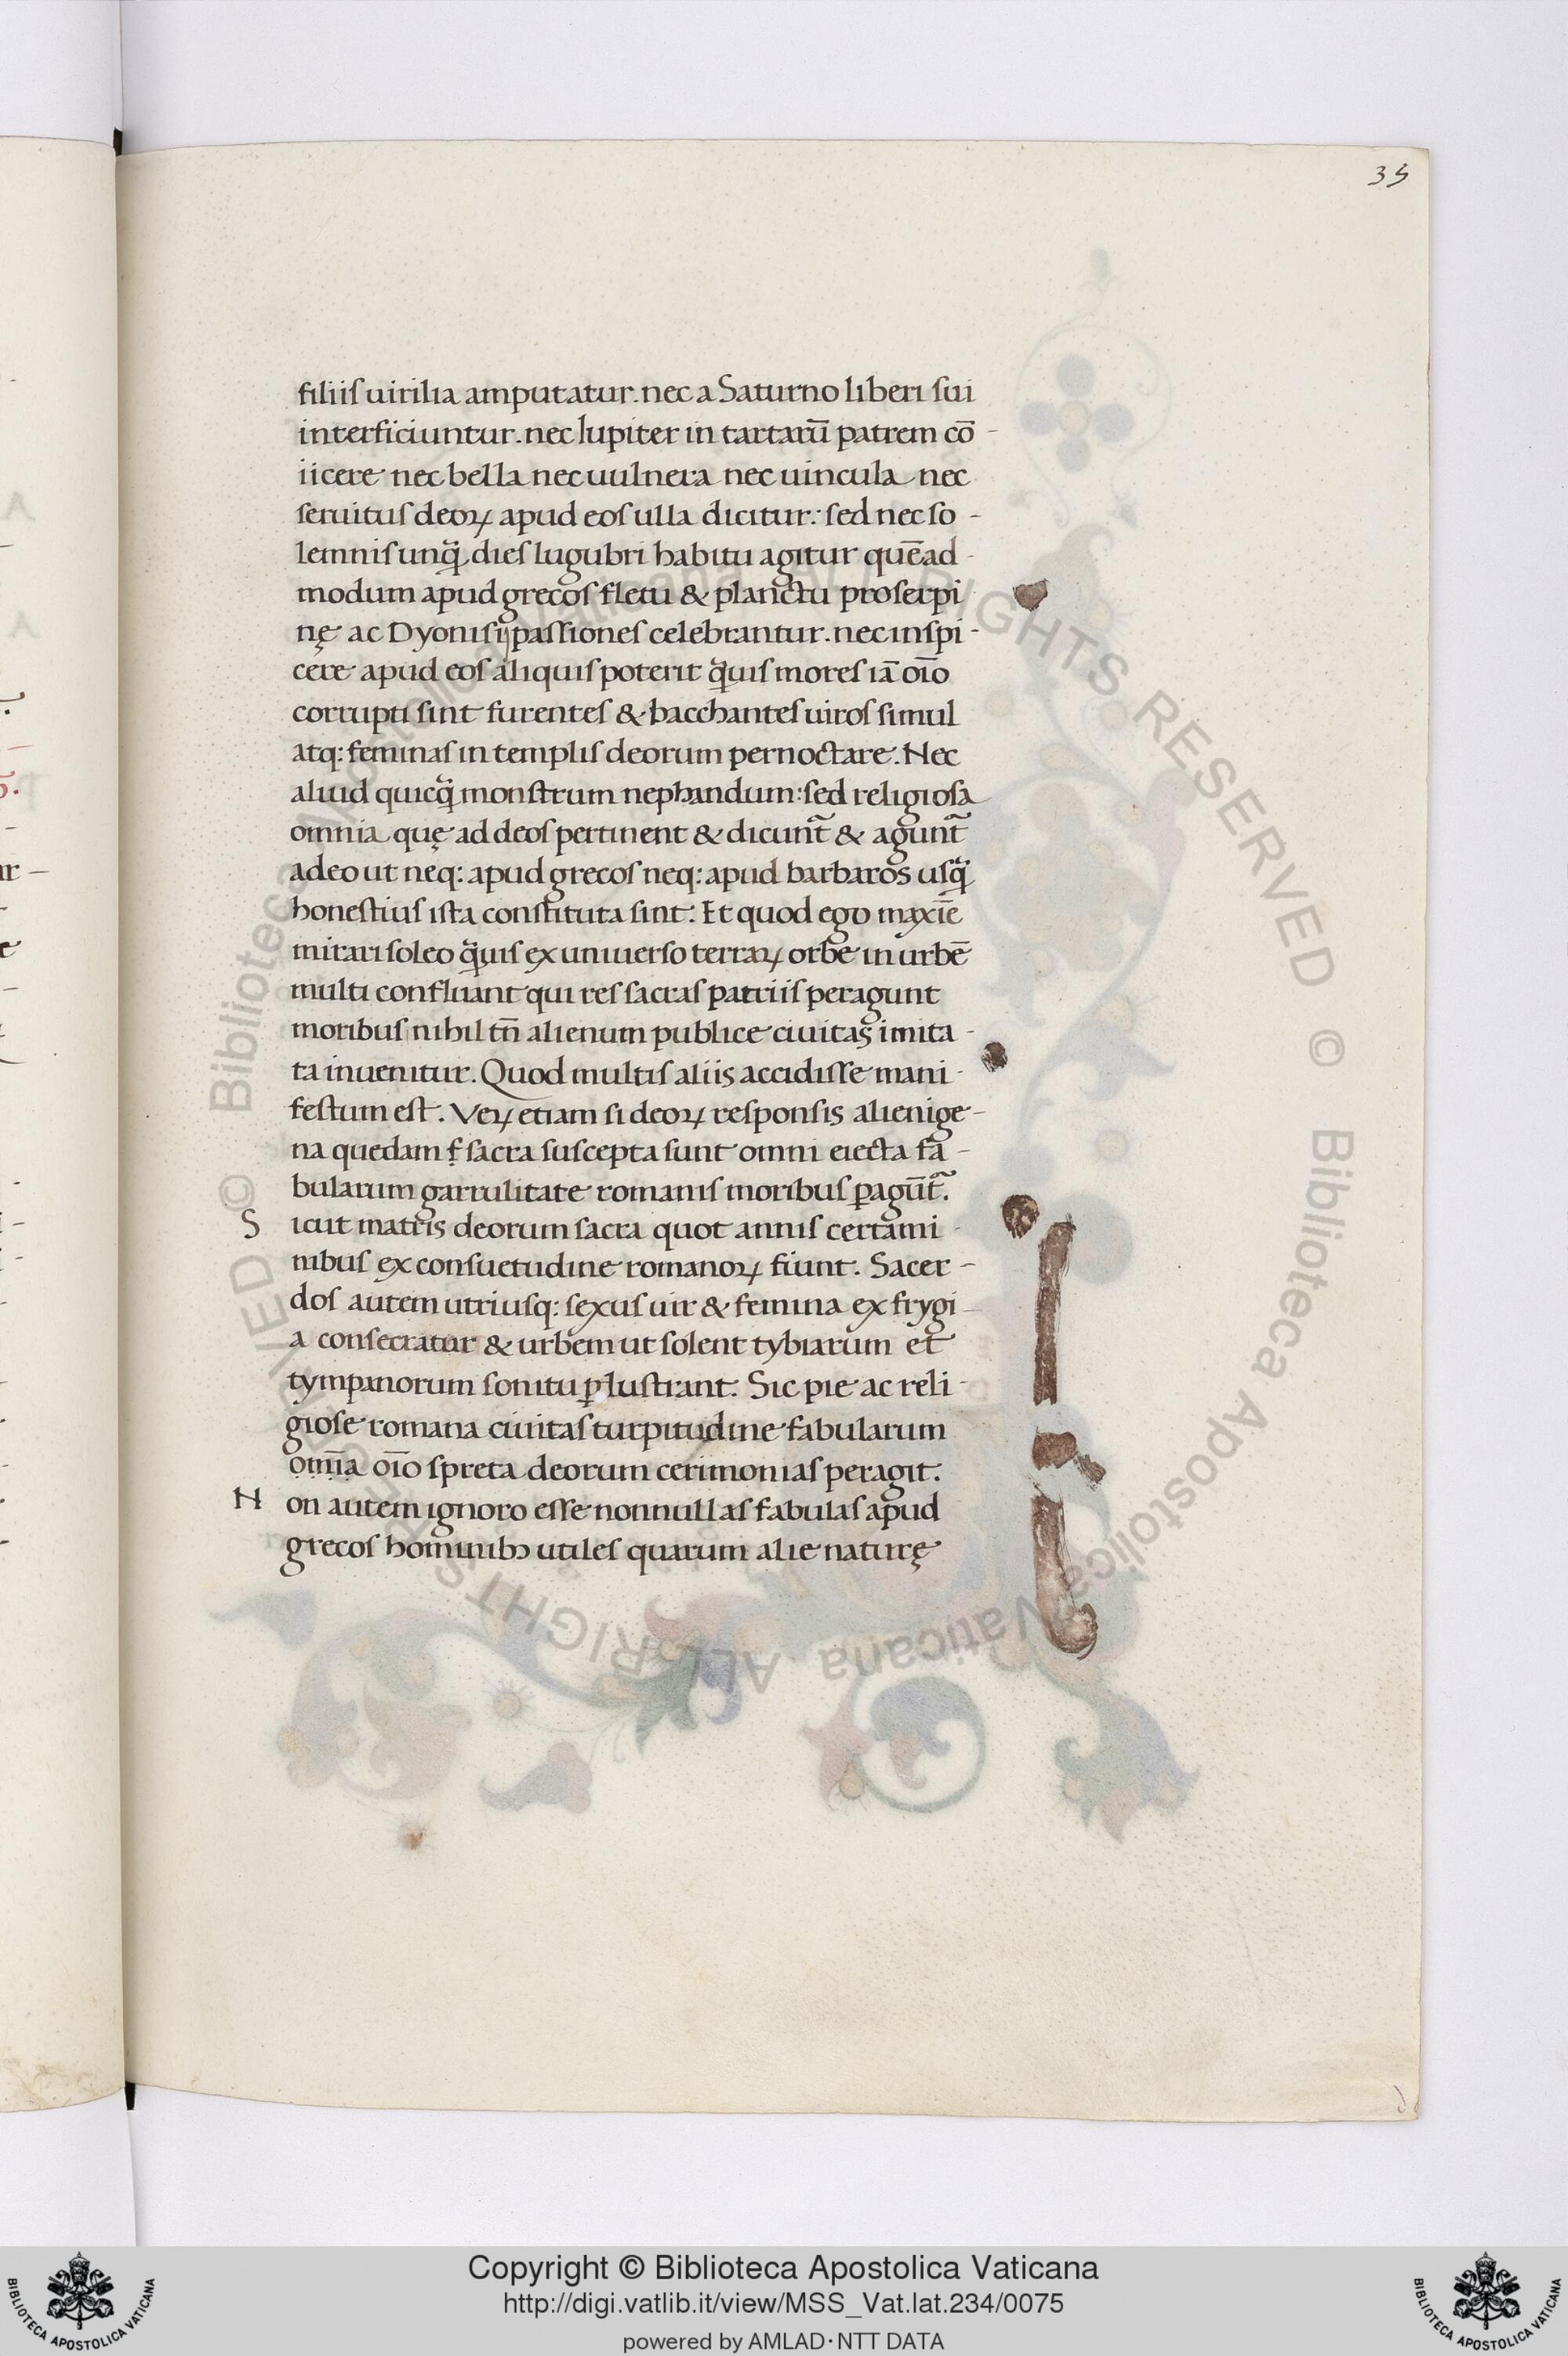 35
filiis uirilia amputatur. nec a Saturno liberi sui
interficiuntur. nec Iupiter in tartarū patrem cō-
iicere nec bella nec uulnera nec uincula nec
seruitus deoꝝ apud eos ulla dicitur: sed nec so-
lemnis unq̃ dies lugubri habitu agitur quēad-
modum apud grecos fletu & planctu proserpi
nę ac Dyonisij passiones celebrantur. nec inspi-
cere apud eos aliquis poterit q̃uis mores iā oīo
corrupti sint furentes & bacchantes uiros simul
atq: feminas in templis deorum pernoctare. Nec
aliud quicq̃ monstrum nephandum: sed religiosa
omnia quę ad deos pertinent & dicunt̃ & agunt̃
adeo ut neq: apud grecos neq: apud barbaros usq̃
honestius ista constituta sint: Et quod ego maxiē
mirari soleo q̃uis ex uniuerso terraꝝ orbe in urbē
multi confluant qui res sacras patriis peragunt
moribus nihil tn̄ alienum publice ciuitas imita-
ta inuenitur. Quod multis aliis accidisse mani-
festum est. Veꝝ etiam si deoꝝ responsis alienige-
na quedam sacra suscepta sunt omni eiecta fa-
bularum garrulitate romanis moribus ꝑagūt̃.
Sicut matris deorum sacra quot annis certami-
nibus ex consuetudine romanoꝝ fiunt. Sacer-
dos autem utriusq: sexus uir & femina ex frygi-
a consecratur & urbem ut solent tybiarum et
tympanorum sonitu ꝑlustrant. Sic pie ac reli-
giose romana ciuitas turpitudine fabularum
omīa oīo spreta deorum cerimonias peragit.
Non autem ignoro esse nonnullas fabulas apud
grecos hominibꝫ utiles quarum alie naturę
© Biblioteca Apostolica Vaticana ALL RIGHTS RESERVED © Biblioteca Apostolica Vaticana ALL RIGHTS RESERVED
BIBLIOTECA APOSTOLICA VATICANA
Copyright © Biblioteca Apostolica Vaticana
http://digi.vatlib.it/view/MSS_Vat.lat.234/0075
powered by AMLAD·NTT DATA
BIBLIOTECA APOSTOLICA VATICANA